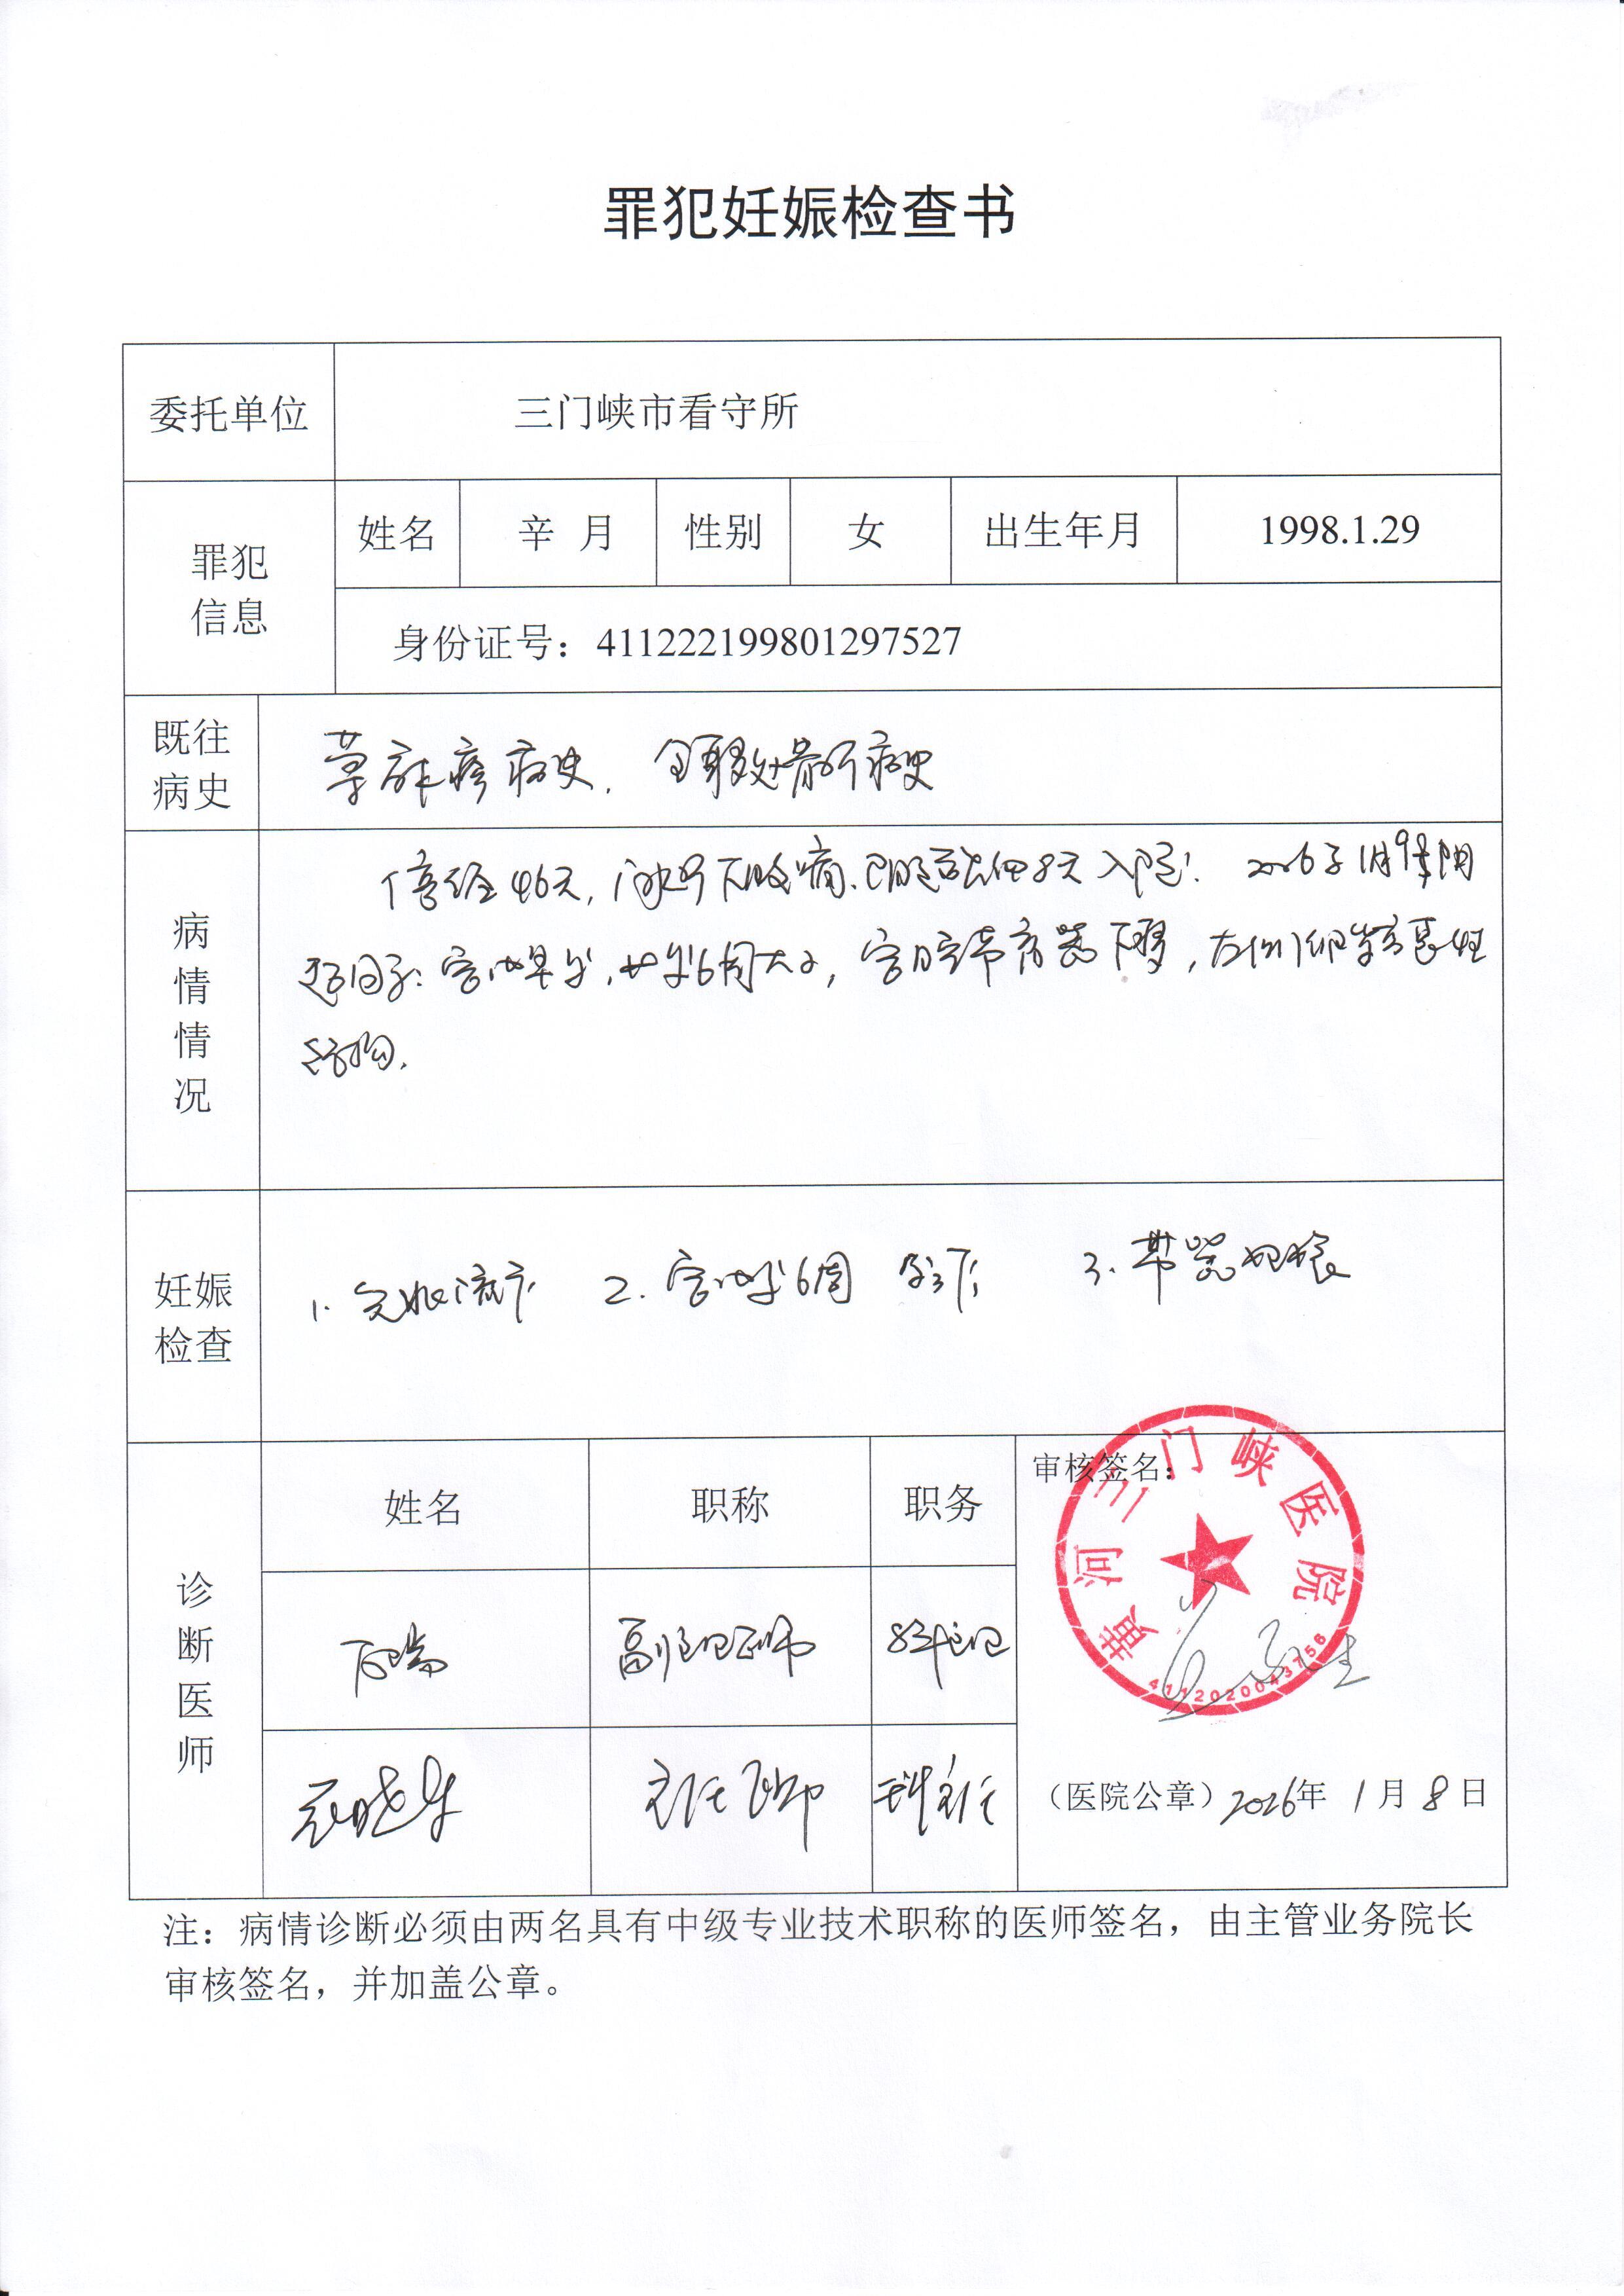 罪犯妊娠检查书
委托单位 三门峡市看守所
罪犯信息 姓名 辛 月 性别 女 出生年月 1998.1.29
身份证号：411222199801297527
既往病史 荨麻疹病史. 骨折病史
病情情况 停经46天, 下腹痛. 8天入院. 2026年1月9日阴
超回示: 宫内早孕, 如孕6周大小, 宫腔节育器下移, 左侧卵巢囊性
结构.
妊娠检查 1. 先兆流产 2. 宫内孕6周 3. 带器妊娠
诊断医师 姓名 职称 职务 审核签名：
副主任医师
主任医师 科主任
黄河三门峡医院
4112020043756
（医院公章）2026年 1月 8日
注：病情诊断必须由两名具有中级专业技术职称的医师签名，由主管业务院长
审核签名，并加盖公章。